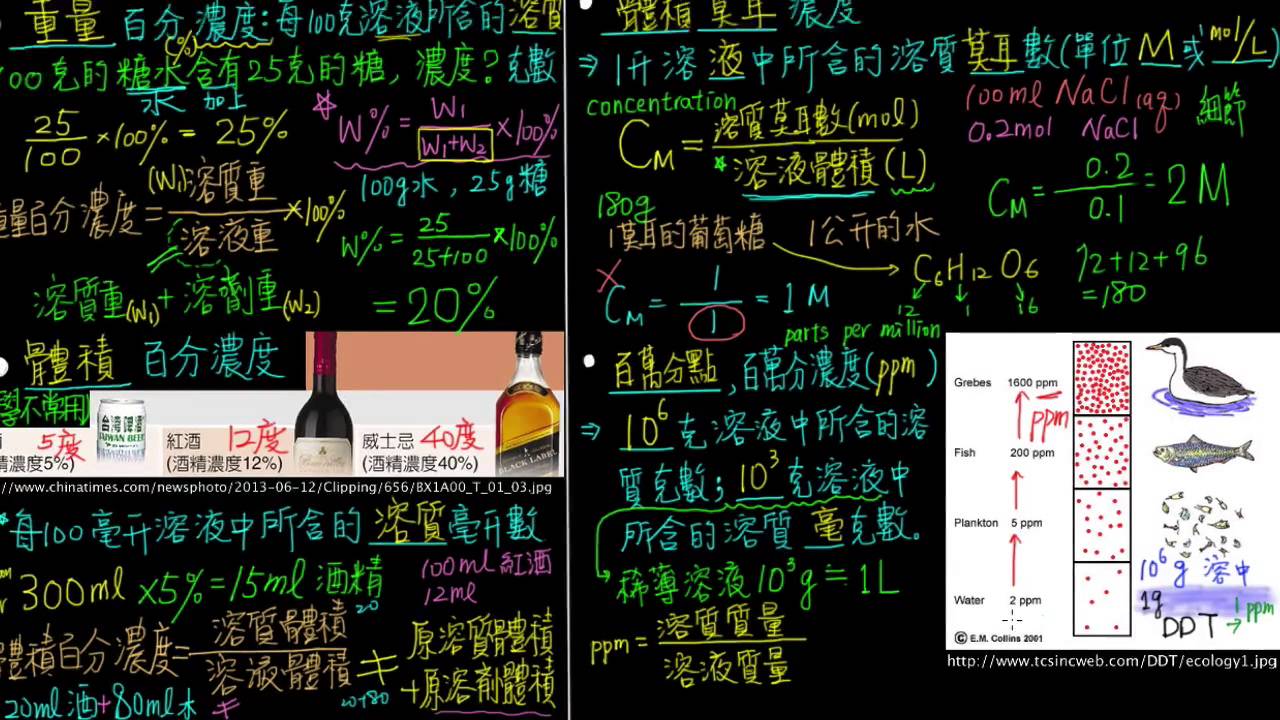 重量 百分濃度:每100克溶液所含的溶質
(%) 克數
100克的糖水含有25克的糖,濃度?
水 加上
25/100 ×100% = 25%
W% = W1/(W1+W2) ×100%
100g水,25g糖
重量百分濃度= (W1)溶質重/溶液重 ×100%
W% = 25/(25+100) ×100%
= 20%
溶質重(W1)+溶劑重(W2)
體積 百分濃度
學不常用
台湾啤酒
TAIWAN BEER
5度
(酒精濃度5%)
紅酒 12度
(酒精濃度12%)
威士忌 40度
(酒精濃度40%)
BLACK LABEL
//www.chinatimes.com/newsphoto/2013-06-12/Clipping/656/BX1A00_T_01_03.jpg
每100毫升溶液中所含的溶質毫升數
300ml ×5%=15ml 酒精
100ml 紅酒
12ml
體積百分濃度= 溶質體積/溶液體積 ≠ 原溶質體積+原溶劑體積
20
20+80
20ml酒+80ml水 ≠
體積 莫耳 濃度
⇒ 1升溶液中所含的溶質莫耳數(單位 M 或 mol/L)
concentration
CM = 溶質莫耳數(mol)/溶液體積(L)
100ml NaCl(aq) 細節
0.2mol NaCl
CM = 0.2/0.1 = 2 M
180g
1莫耳的葡萄糖 1公升的水
C6H12O6 72+12+96
=180
12 1 16
CM = 1/1 = 1 M
parts per million
百萬分點,百萬分濃度(ppm)
⇒ 10^6 克溶液中所含的溶
質克數;10^3克溶液中
所含的溶質 毫克數。
稀薄溶液10^3g≒1L
ppm = 溶質質量/溶液質量
Grebes 1600 ppm
ppm
Fish 200 ppm
Plankton 5 ppm
Water 2 ppm
10^6 g 溶中
1g
DDT → 1 ppm
© E.M. Collins 2001
http://www.tcsincweb.com/DDT/ecology1.jpg